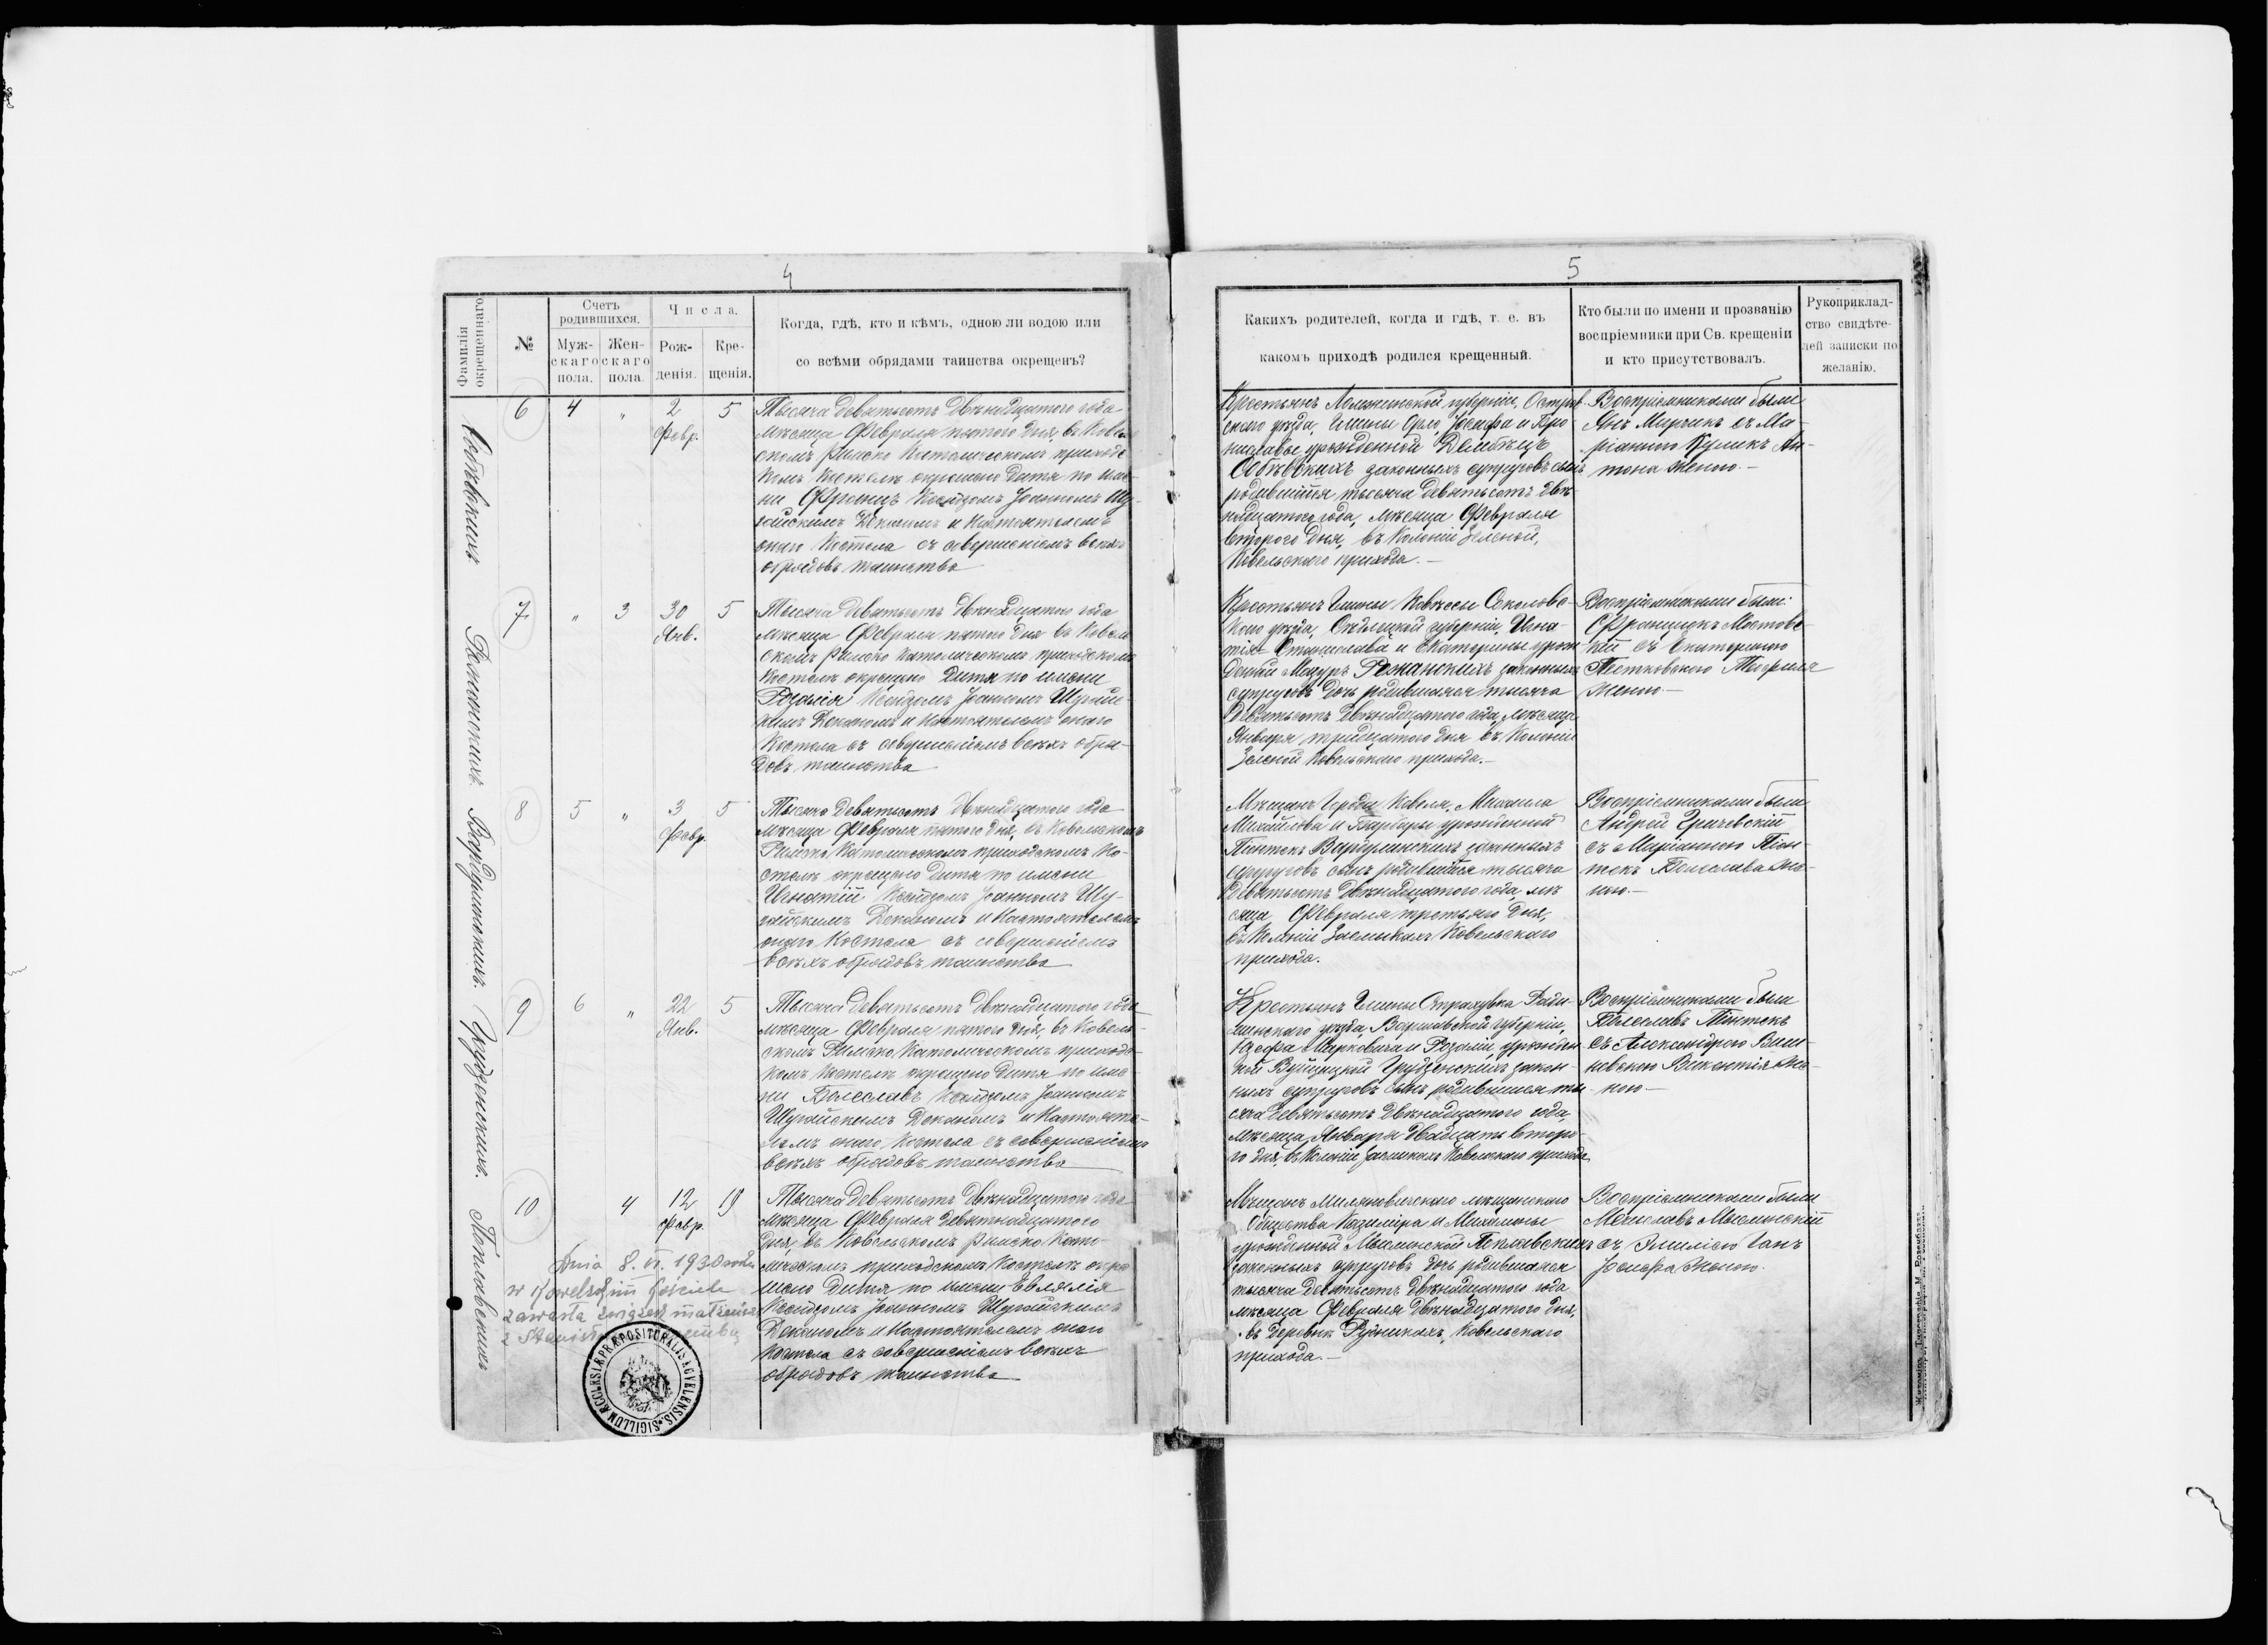 4
Фамилія окрещеннаго.
№
Счетъ родившихся.
Мужскаго пола.
Женскаго пола.
Числа.
Рожденія.
Крещенія.
Когда, гдѣ, кто и кѣмъ, одною ли водою или
со всѣми обрядами таинства окрещенъ?
6 4 " 2 Февр. 5
Тысяча девятьсотъ двѣнадцатого года
мѣсяца Февраля пятого дня, въ Ковель
скомъ Римско Католическомъ приходс
комъ Костелѣ окрещено дитя по име
ни Францъ Ксендзомъ Іоанномъ Шу-
гайскимъ Деканомъ и Настоятелемъ
онаго Костела съ совершеніемъ всѣхъ
обрядовъ таинства
7 " 3 30 Янв. 5
Тысяча девятьсотъ двѣнадцатого года
мѣсяца Февраля пятого дня въ Ковель
скомъ Римско Католическомъ приходскомъ
Костелѣ окрещено дитя по имени
Розалія Ксендзомъ Іоанномъ Шугайс
кимъ Деканомъ и Настоятелемъ онаго
Костела съ совершеніемъ всѣхъ обря-
довъ таинства
8 5 " 3 Февр. 5
Тысяча девятьсотъ двѣнадцатого года
мѣсяца Февраля пятого дня, въ Ковельскомъ
Римско Католическомъ приходскомъ Ко-
стелѣ окрещено дитя по имени
Игнатій Ксендзомъ Іоанномъ Шу-
гайскимъ Деканомъ и Настоятелемъ
онаго Костела съ совершеніемъ
всѣхъ обрядовъ таинства
Вардынскихъ.
9 6 " 22 Янв. 5
Тысяча девятьсотъ двѣнадцатого года
мѣсяца Февраля пятого дня, въ Ковель-
скомъ Римско Католическомъ приходс-
комъ Костелѣ окрещено дитя по име
ни Болеславъ Ксендзомъ Іоанномъ
Шугайскимъ Деканомъ и Настояте-
лемъ онаго Костела съ совершеніемъ
всѣхъ обрядовъ таинства
Грудзенскихъ.
10 4 12 Февр. 19
Тысяча девятьсотъ двѣнадцатого года
мѣсяца Февраля девятнадцатого
дня, въ Ковельскомъ Римско Като-
лическомъ приходскомъ Костелѣ окре
щено дитя по имени Евлялія
Ксендзомъ Іоанномъ Шугайскимъ
Деканомъ и Настоятелемъ онаго
Костела съ совершеніемъ всѣхъ
обрядовъ таинства
Поплавскихъ
Dnia 8. VI. 1930 roku
w Kowelskim Kościele
zawarła związek małżeński
SIGILLUM ECCLESIÆ PRÆPOSITURALIS
5
Какихъ родителей, когда и гдѣ, т. е. въ
какомъ приходѣ родился крещенный.
Кто были по имени и прозванію
воспріемники при Св. крещеніи
и кто присутствовалъ.
Рукоприклад-
ство свидѣте-
лей записки по
желанію.
Крестьянъ Ломжинской губерніи, Остров
скаго уѣзда, Гмины Орло, Іосифа и Бро
ниславы урожденной
законныхъ супруговъ сынъ
родившійся тысяча девятьсотъ двѣ
надцатого года, мѣсяца Февраля
второго дня, въ Колоніи Зеленой,
Ковельскаго прихода.—
Воспріемниками были
Янъ съ Ма-
ріанною Куликъ Ан-
тона женою.—
Крестьянъ Гмины Соколовс-
кого уѣзда, Сѣдлецкой губерніи, Игна-
тія Станислава и Екатерины урож
денной Мазуръ законныхъ
супруговъ дочь родившаяся тысяча
девятьсотъ двѣнадцатого года, мѣсяца
Января тридцатого дня въ Колоніи
Зеленой Ковельскаго прихода.—
Воспріемниками были:
Францишекъ Мостовс
кій съ Екатериною
женою—
Мѣщанъ Города Ковеля, Михаила
Михайлова и Барбары урожденной
Піонтекъ Вардынскихъ законныхъ
супруговъ сынъ родившійся тысяча
девятьсотъ двѣнадцатого года, мѣ
сяца Февраля третьяго дня,
въ Колоніи Ковельскаго
прихода.
Воспріемниками были
Андрей
съ Маріанною Піон-
текъ Болеслава же-
ною.—
Крестьянъ Гмины Страхувка Ради-
минскаго уѣзда, Варшавской губерніи,
Іосифа Марковича и Розаліи урожден
ной Грудзенскихъ закон-
ныхъ супруговъ сынъ родившійся ты
сяча девятьсотъ двѣнадцатого года,
мѣсяца Января двадцать второ-
го дня, въ Колоніи Ковельскаго прихода
Воспріемниками были
Болеславъ Піонтекъ
съ Александрою Виш-
невскою Викентія же-
ною—
Мѣщанъ Миляновичскаго мѣщанскаго
Общества Казимира и
урожденной Мыслинской Поплавскихъ
законныхъ супруговъ дочь родившаяся
тысяча девятьсотъ двѣнадцатого года
мѣсяца Февраля двѣнадцатого дня,
въ деревнѣ Рудникахъ, Ковельскаго
прихода.—
Воспріемниками были
Мечиславъ Мыслинскій
съ Эмиліею Ганъ
Іосифа женою.